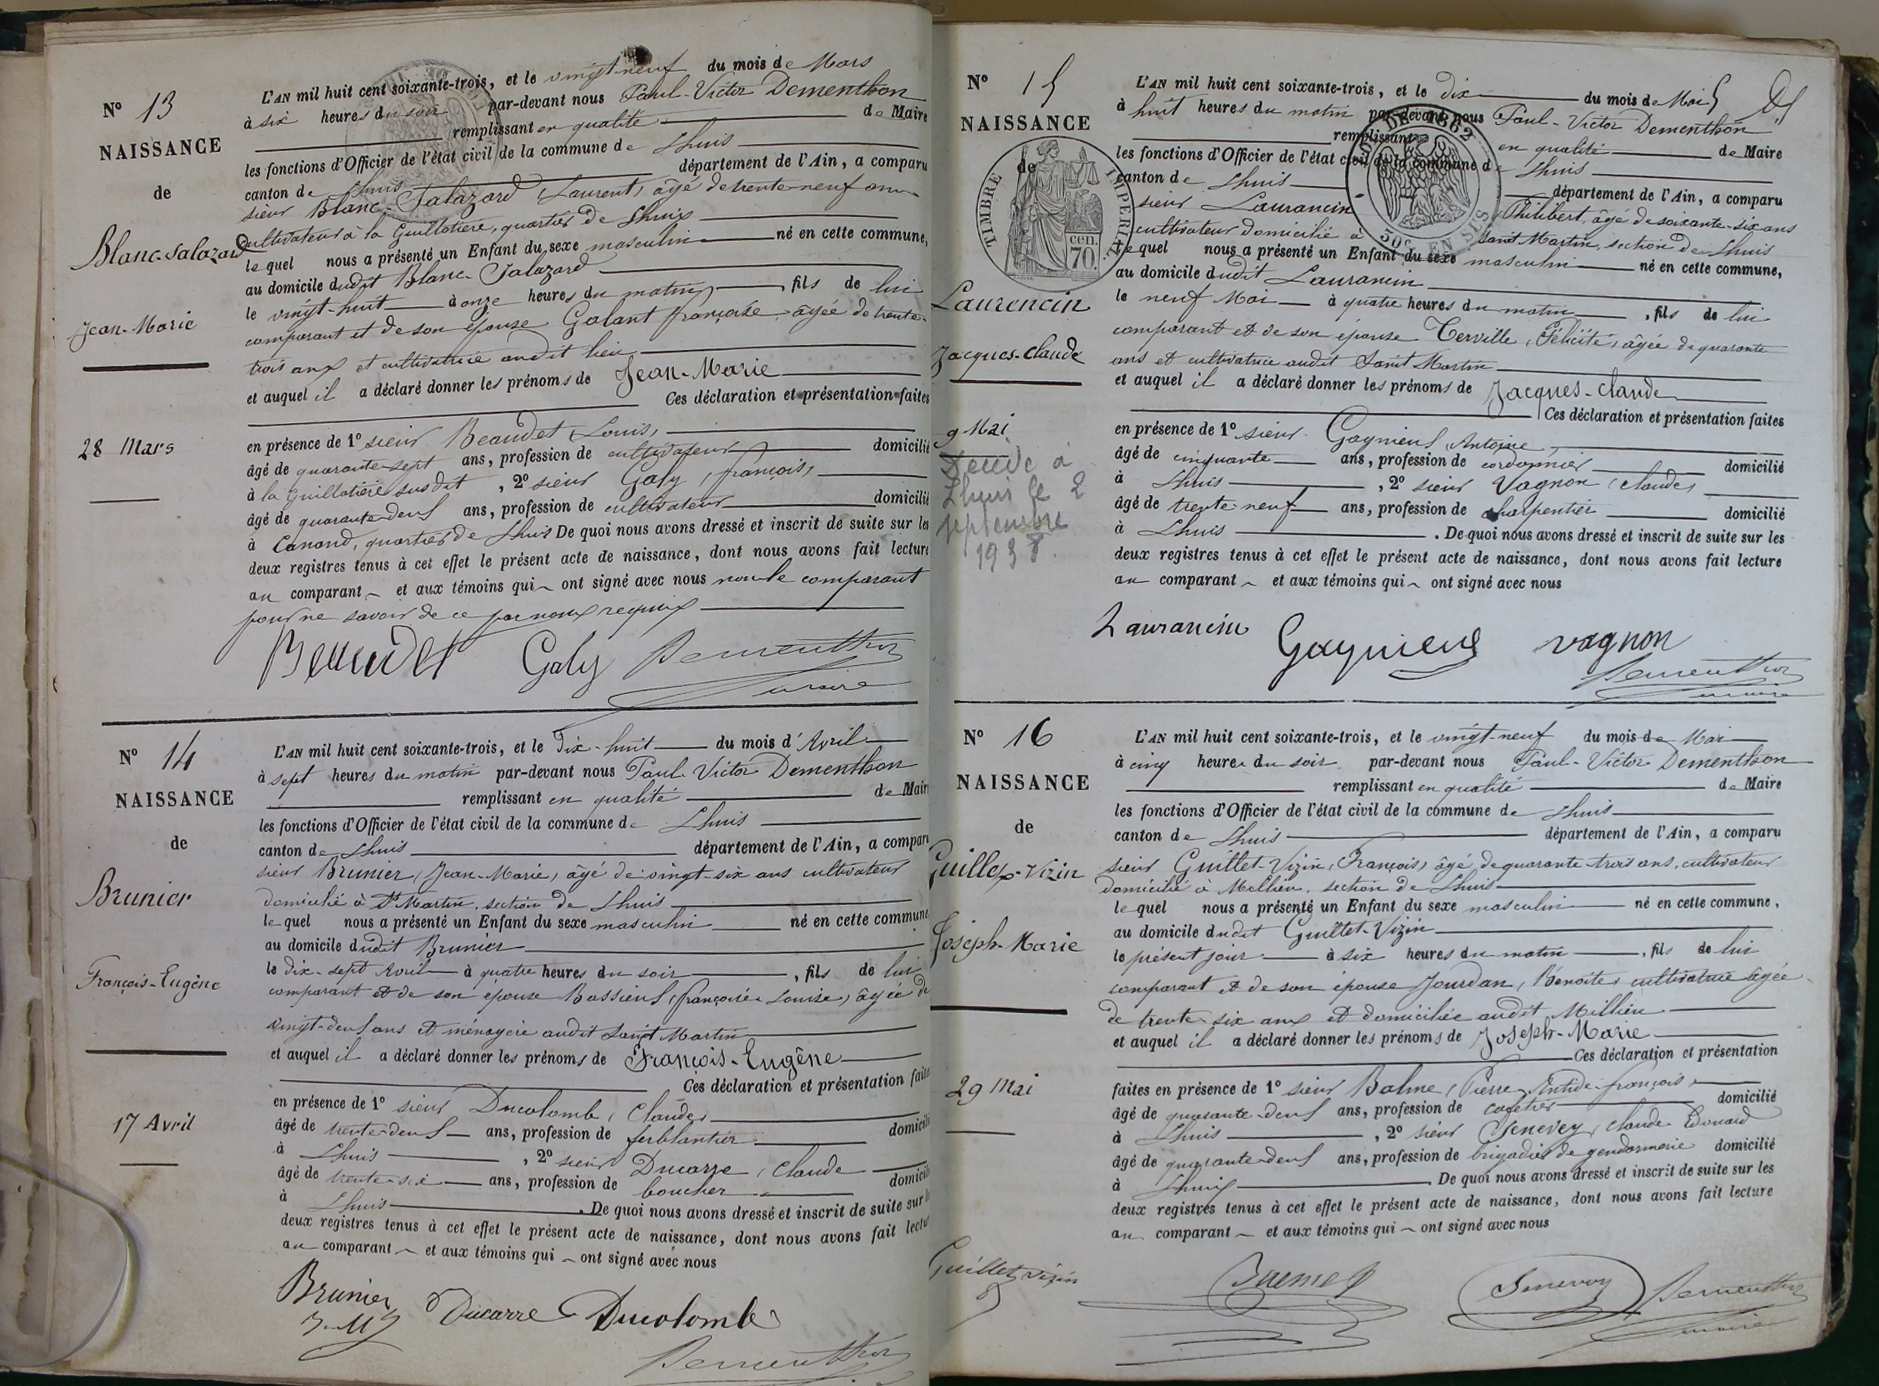 N° 13
NAISSANCE
de
Blanc-Salazard
Jean-Marie
28 Mars
L'AN mil huit cent soixante-trois, et le vingt-neuf du mois de Mars
à six heures du soir par-devant nous Paul-Victor Dementhon
remplissant en qualité de Maire
les fonctions d'Officier de l'état civil de la commune de Lhuis
canton de Lhuis département de l'Ain, a comparu
sieur Blanc-Salazard, Laurent, âgé de trente-neuf ans
cultivateur à la Guillotière, quartier de Lhuis
lequel nous a présenté un Enfant du sexe masculin né en cette commune,
au domicile dudit Blanc-Salazard
le vingt-huit à onze heures du matin, fils de lui
comparant et de son épouse Galant françoise âgée de trente-
trois ans et cultivatrice audit lieu
et auquel il a déclaré donner les prénoms de Jean-Marie
Ces déclaration et présentation faites
en présence de 1° sieur Beaudet, Louis,
âgé de quarante-sept ans, profession de cultivateur domicilié
à la Guillotière susdit, 2° sieur Galy, françois,
âgé de quarante-deux ans, profession de cultivateur domicilié
à Canand, quartier de Lhuis De quoi nous avons dressé et inscrit de suite sur les
deux registres tenus à cet effet le présent acte de naissance, dont nous avons fait lecture
au comparant et aux témoins qui ont signé avec nous non le comparant
pour ne savoir de ce par nous requis
Beaudet Galy Dementhon
maire
N° 14
NAISSANCE
de
Brunier
François-Eugène
17 Avril
L'AN mil huit cent soixante-trois, et le Dix-huit du mois d'Avril
à sept heures du matin par-devant nous Paul-Victor Dementhon
remplissant en qualité de Maire
les fonctions d'Officier de l'état civil de la commune de Lhuis
canton de Lhuis département de l'Ain, a comparu
sieur Brunier, Jean-Marie, âgé de vingt-six ans cultivateur
domicilié à St Martin, section de Lhuis
lequel nous a présenté un Enfant du sexe masculin né en cette commune
au domicile dudit Brunier
le dix-sept Avril à quatre heures du soir, fils de lui
comparant et de son épouse Bassieux, françoise Louise, âgée de
vingt-deux ans et ménagère audit Saint Martin
et auquel il a déclaré donner les prénoms de François-Eugène
Ces déclaration et présentation faites
en présence de 1° sieur Ducolomb, Claude,
âgé de trente-deux ans, profession de ferblantier domicilié
à Lhuis, 2° sieur Ducarre, Claude
âgé de trente-six ans, profession de boucher domicilié
à Lhuis. De quoi nous avons dressé et inscrit de suite sur les
deux registres tenus à cet effet le présent acte de naissance, dont nous avons fait lecture
au comparant et aux témoins qui ont signé avec nous
Brunier Ducarre Ducolomb
Dementhon
N° 15
NAISSANCE
de
TIMBRE IMPERIAL
70 cen.
Laurencin
Jacques-Claude
9 Mai
Décédé a
Lhuis le 2
septembre
1938
L'AN mil huit cent soixante-trois, et le dix du mois de Mai
à huit heures du matin par-devant nous Paul-Victor Dementhon
remplissant en qualité de Maire
les fonctions d'Officier de l'état civil de la commune de Lhuis
canton de Lhuis département de l'Ain, a comparu
sieur Laurancin Philibert, âgé de soixante-six ans
cultivateur domicilié à Saint Martin, section de Lhuis
lequel nous a présenté un Enfant du sexe masculin né en cette commune,
au domicile dudit Laurancin
le neuf Mai à quatre heures du matin, fils de lui
comparant et de son épouse Terville, Félicité, âgée de quarante
ans et cultivatrice audit Saint Martin
et auquel il a déclaré donner les prénoms de Jacques-Claude
Ces déclaration et présentation faites
en présence de 1° sieur Gaynieux, Antoine,
âgé de cinquante ans, profession de cordonnier domicilié
à Lhuis, 2° sieur Vagnon, Claude,
âgé de trente-neuf ans, profession de charpentier domicilié
à Lhuis. De quoi nous avons dressé et inscrit de suite sur les
deux registres tenus à cet effet le présent acte de naissance, dont nous avons fait lecture
au comparant et aux témoins qui ont signé avec nous
Laurancin Gaynieux vagnon
Dementhon
maire
N° 16
NAISSANCE
de
Guillet-Vizin
Joseph-Marie
29 Mai
L'AN mil huit cent soixante-trois, et le vingt-neuf du mois de Mai
à cinq heures du soir par-devant nous Paul-Victor Dementhon
remplissant en qualité de Maire
les fonctions d'Officier de l'état civil de la commune de Lhuis
canton de Lhuis département de l'Ain, a comparu
sieur Guillet-Vizin, François, âgé de quarante-trois ans, cultivateur
domicilié à Millieu, section de Lhuis
lequel nous a présenté un Enfant du sexe masculin né en cette commune,
au domicile dudit Guillet-Vizin
le présent jour à six heures du matin, fils de lui
comparant et de son épouse Jourdan, Benoîte, cultivatrice âgée
de trente-six ans et domiciliée audit Millieu
et auquel il a déclaré donner les prénoms de Joseph-Marie
Ces déclaration et présentation
faites en présence de 1° sieur Balme, Pierre Antide françois,
âgé de quarante-deux ans, profession de cafetier domicilié
à Lhuis, 2° sieur Genevey, Claude Edouard
âgé de quarante-deux ans, profession de brigadier de gendarmerie domicilié
à Lhuis. De quoi nous avons dressé et inscrit de suite sur les
deux registres tenus à cet effet le présent acte de naissance, dont nous avons fait lecture
au comparant et aux témoins qui ont signé avec nous
Guillet vizin Genevey Dementhon
maire